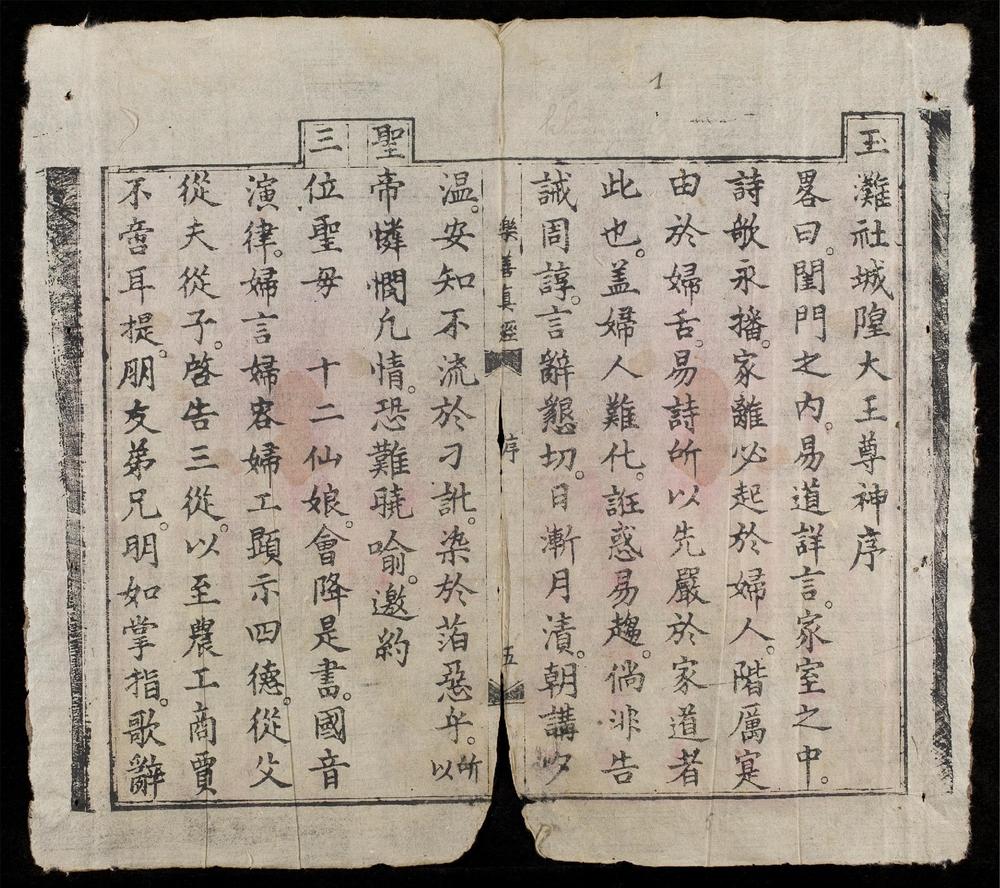 玉
灘社城隍大王尊神序
畧曰。閨門之內。易道詳言。家室之中。
詩歌永播。家離必起於婦人。階厲寔
由於婦舌。易詩所以先嚴於家道者
此也。盖婦人難化。誑惑易趨。倘非告
誡周諄。言辭懇切。日漸月漬。朝講夕
樂善真經 序 五
温。安知不流於刁訛。染於萡惡乎。所以
聖
帝憐憫凢情。恐難曉喻。邀約
三
位聖毋 十二仙娘。會降是書。國音
演律。婦言婦容婦工顕示四德。從父
從夫從子。啓告三從。以至農工商賈
不啻耳提。朋友弟兄。明如掌指。歌辭
1